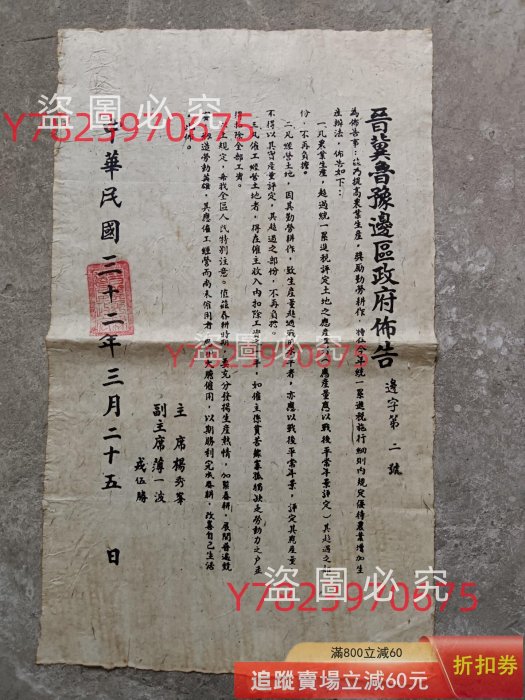 晉冀魯豫邊區政府佈告
邊字第二號
為佈告事：茲為提高農業生產，獎勵勤勞耕作，特在今年統一累進稅施行細則內規定優待農業增加生
產辦法，佈告如下：
一凡農業生產，超過統一累進稅評定土地之應產量（應產量應以戰後平常年景評定）其超過之部
份，不再負擔。
二凡經營土地，因其勤勞耕作，致生產量超過戰前平年者，亦應以戰後平常年景，評定其應產量
不得以其實產量評定，其超過之部份，不再負擔。
三凡僱工經營土地者，得在僱主收入內扣除工資之半，如僱主係貧苦鰥寡孤獨缺乏勞動力之戶並
扣除全部工資。
上規定，希我全區人民特別注意。值茲春耕時期，要充分發揚生產熱情，加緊春耕，展開普遍競
造勞動英雄，其應僱工經營而尚未僱用者，大膽僱用，以期勝利完成春耕，改善自己生活
主席楊秀峯
副主席薄一波
戎伍勝
中華民國三十二年三月二十五日
盜圖必究
Y7625970675
盜圖必究
Y7625970675
盜圖必究
Y7625970675
滿800立減60
追蹤賣場立減60元
折扣券